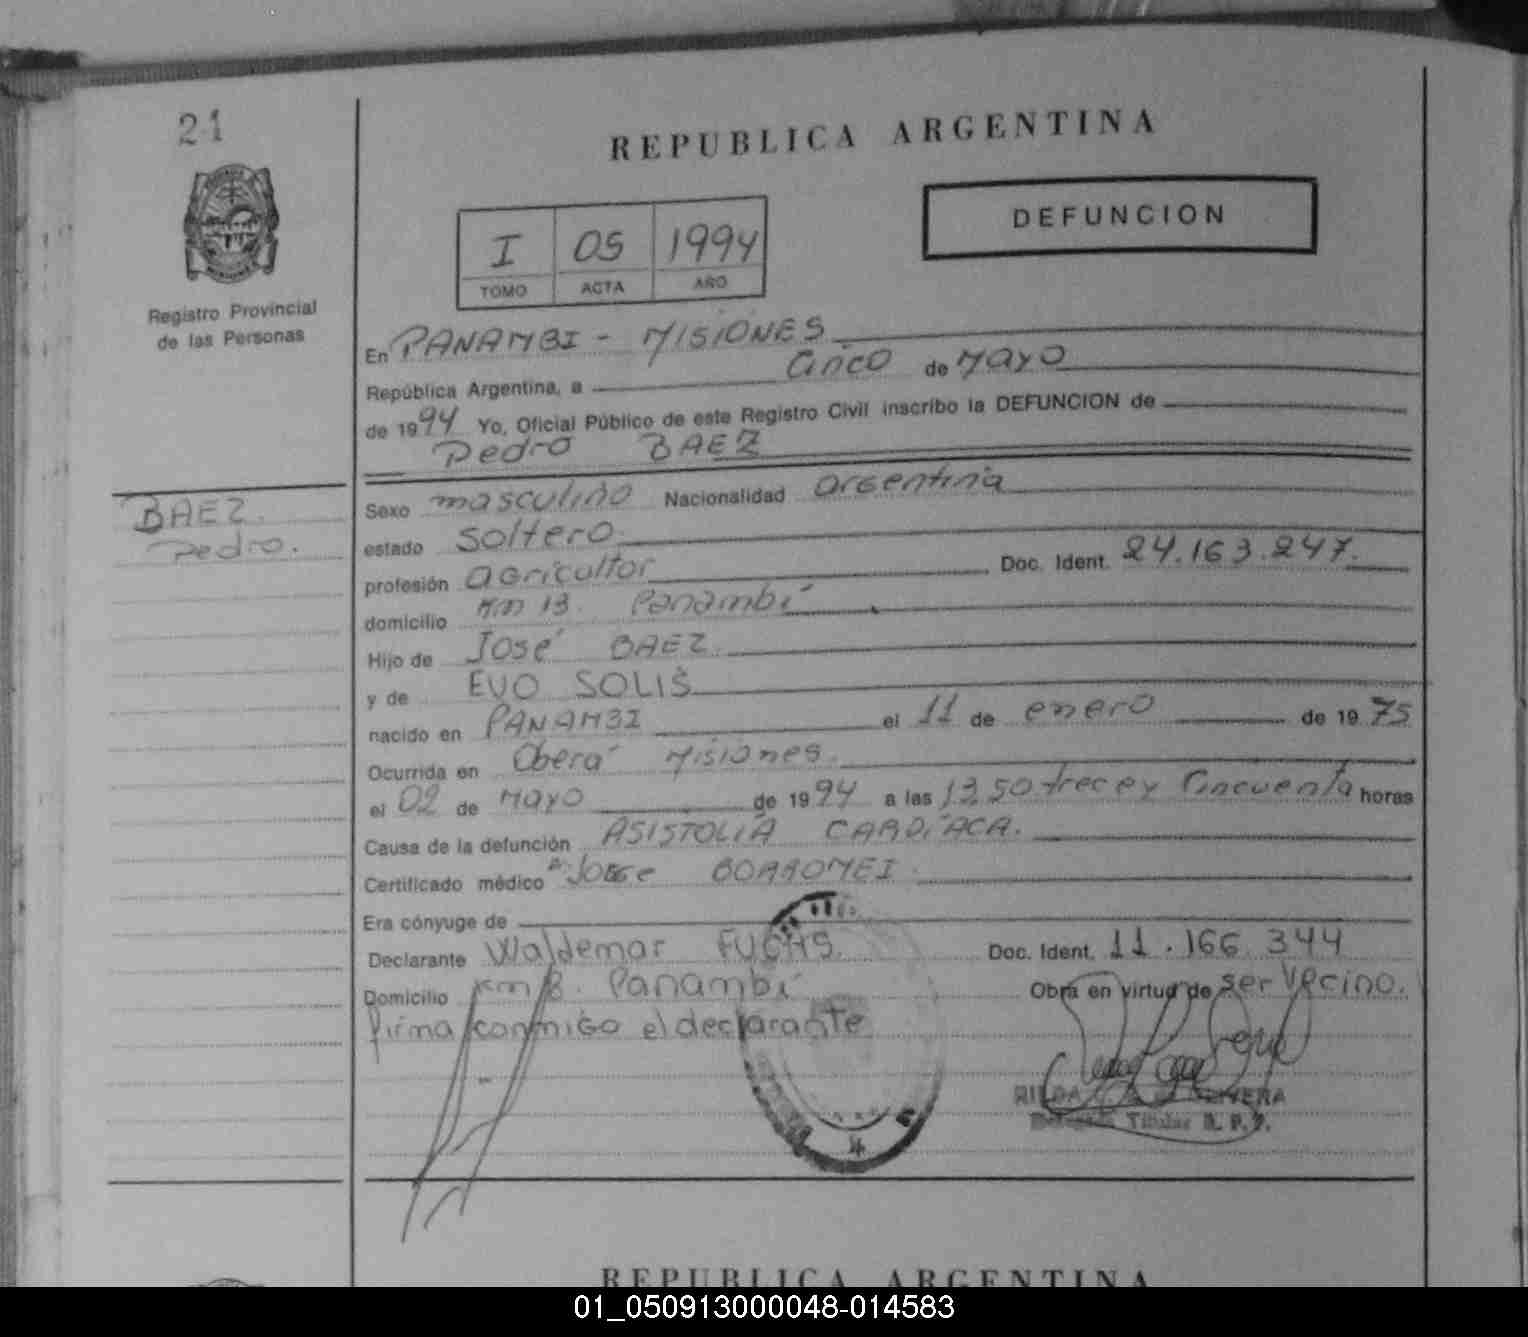 21
REPUBLICA ARGENTINA
DEFUNCION
I 05 1994
TOMO ACTA AÑO
Registro Provincial
de las Personas
En PANAMBI - MISIONES
República Argentina, a cinco de Mayo
de 1994 Yo, Oficial Público de este Registro Civil inscribo la DEFUNCION de
Pedro BAEZ
BAEZ.
Pedro.
Sexo masculino Nacionalidad argentina
estado soltero.
profesión agricultor Doc. Ident. 24.163.247.
domicilio Km 13. Panambí
Hijo de José BAEZ.
y de EVO SOLIS
nacido en PANAMBI el 11 de enero de 1975
Ocurrida en Oberá Misiones.
el 02 de Mayo de 1994 a las 13,50 trece y cincuenta horas
Causa de la defunción ASISTOLIA CARDÍACA.
Certificado médico Jorge BORROMEI.
Era cónyuge de
Declarante Waldemar FUCHS. Doc. Ident. 11.166.344
Domicilio Km 8. Panambí Obra en virtud de ser vecino.
firma conmigo el declarante
OLIVERA
Titular R. P. P.
REPUBLICA ARGENTINA
01_050913000048-014583